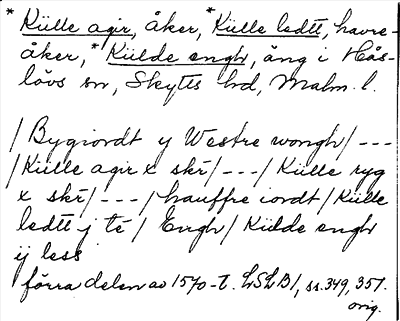 *Külle agir, åker, *Külle ledtt, havre-
åker, *Külde enghr, äng i Hås-
lövs sn, Skytts hd, Malm. l.
/Bygiordt y Westre wongh/---
/Külle agir x skr̄/---/Külle ryg
x skr̄/---/hauffre iordt/Külle
ledtt j te/ Enghr/Külde enghr
ij less
förra delen av 1570-t. LSLB1, ss. 349, 351.
orig.